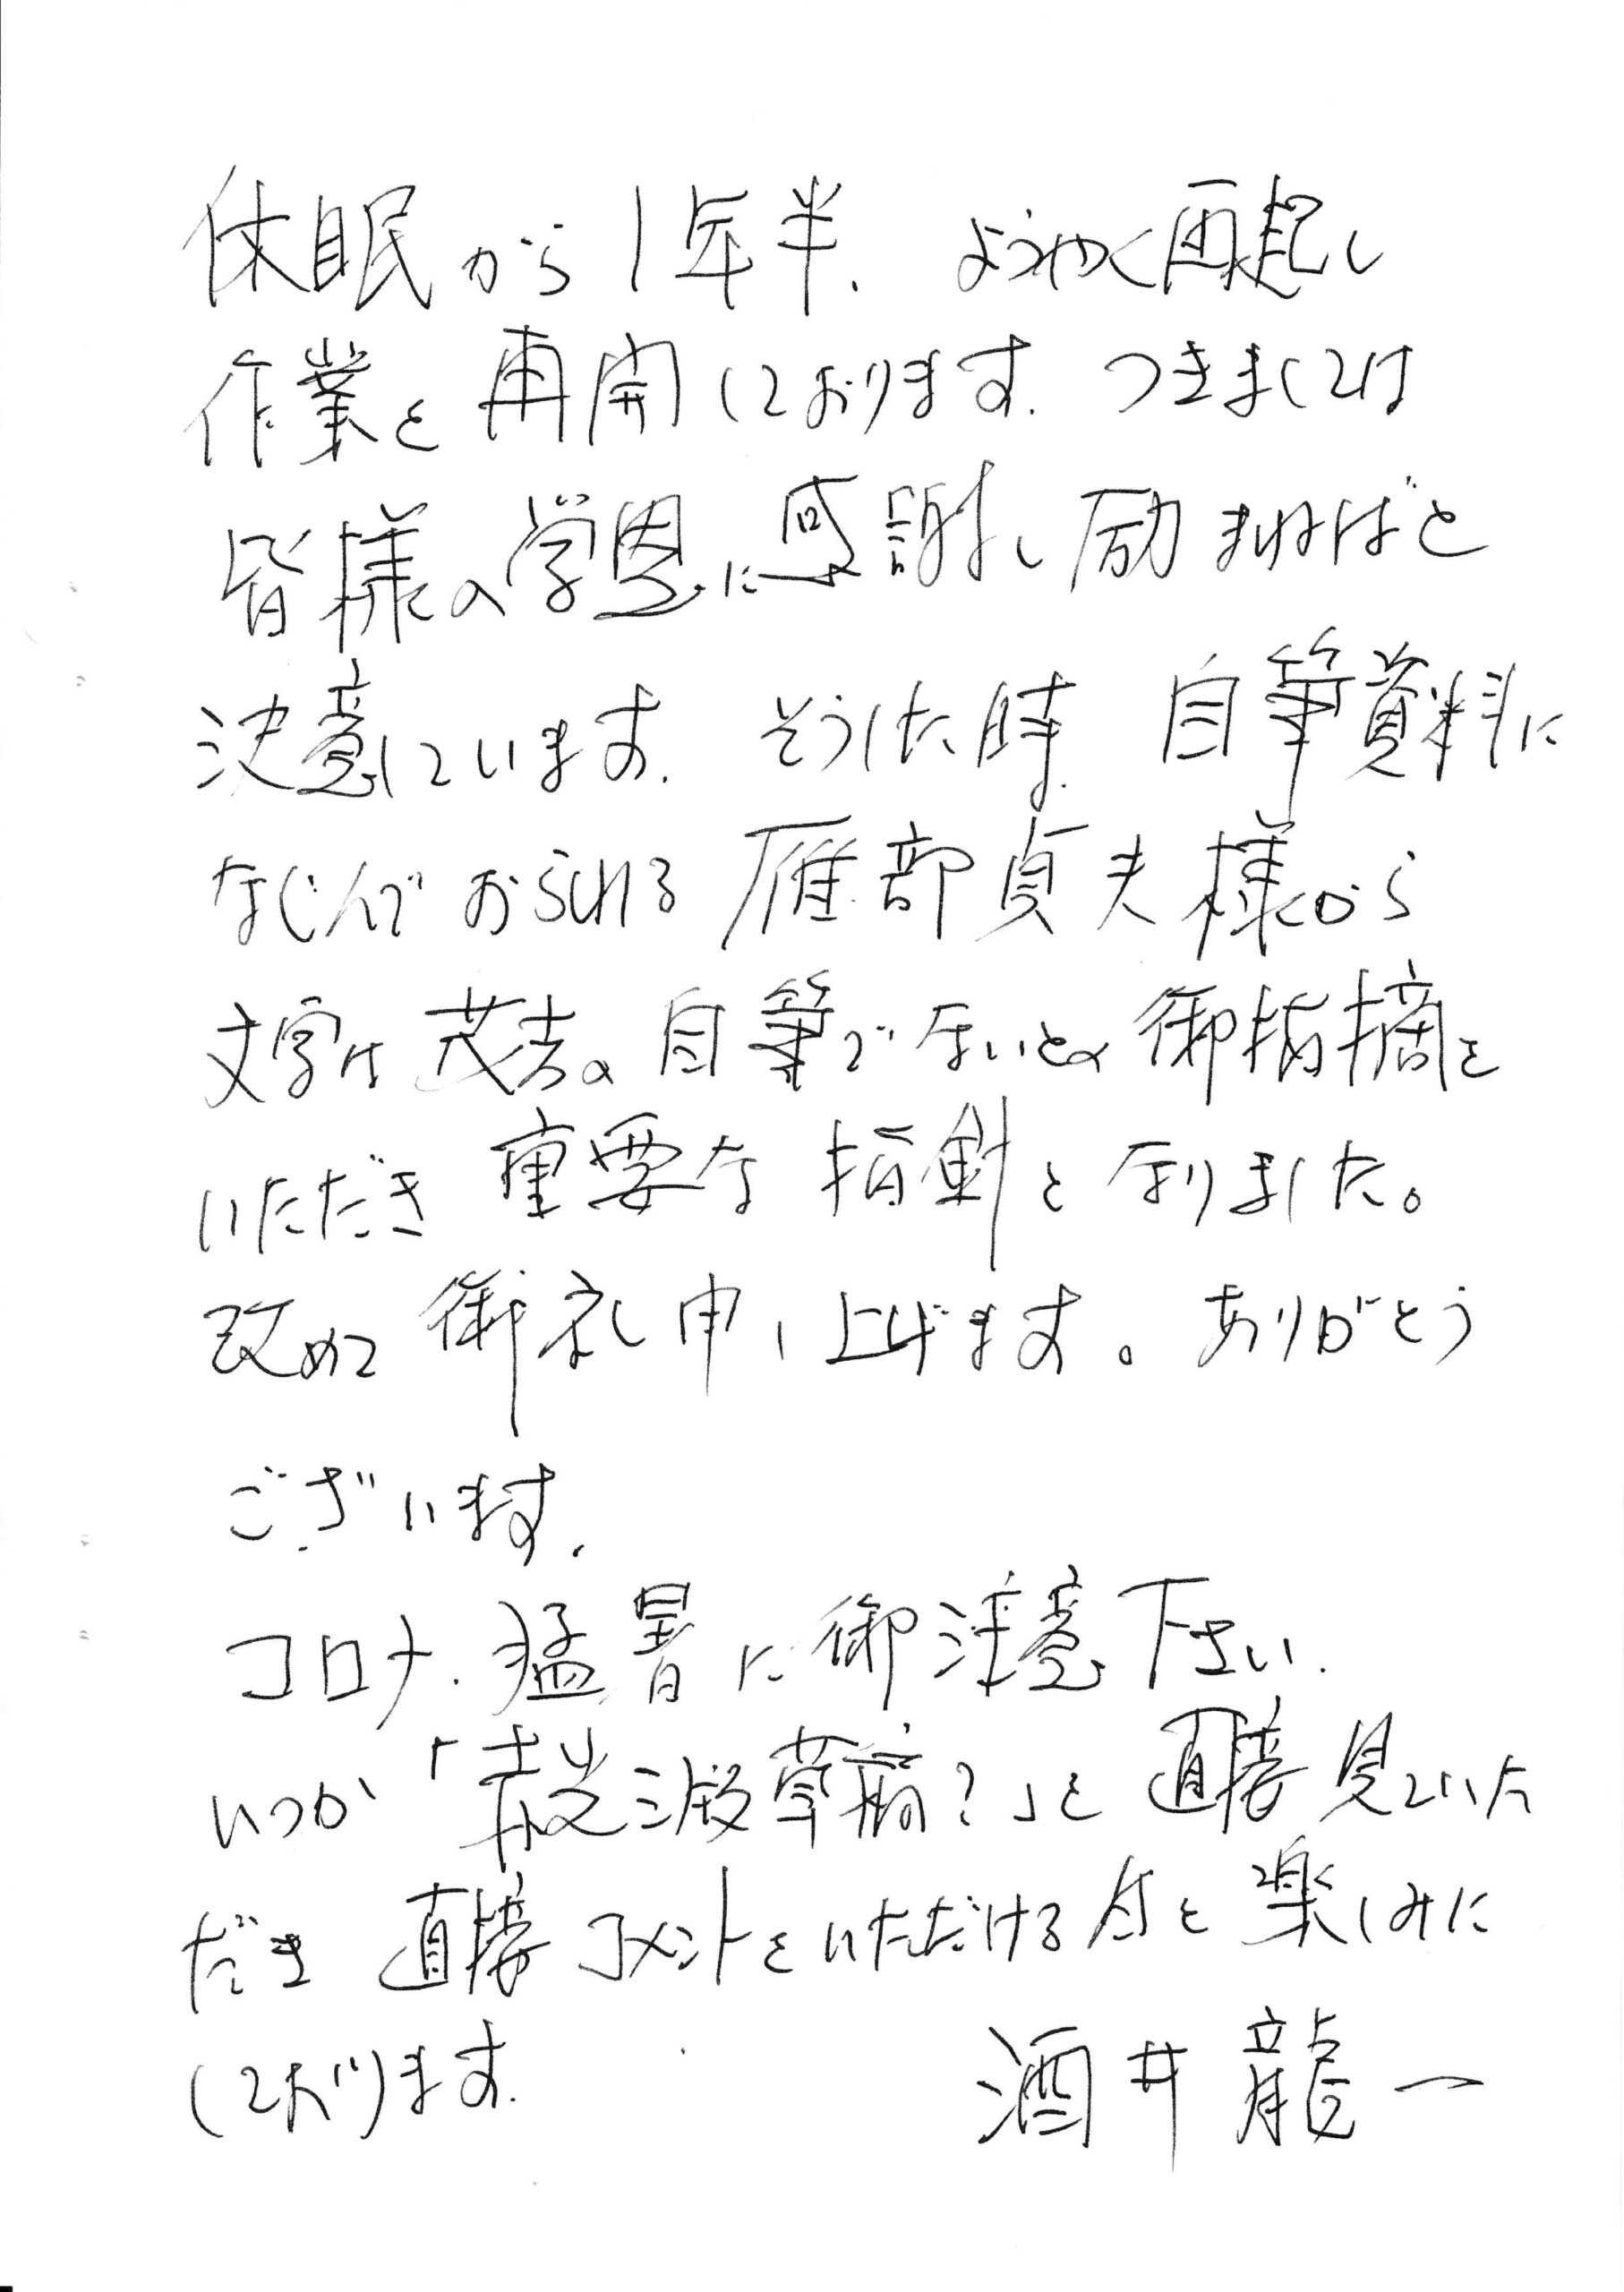 休眠から1年半、ようやく再起し
作業を再開しております。つきましては
皆様の学恩に感謝し励まねばと
決意しています。そうした時、自筆資料に
なじんでおられる雁部貞夫様から
文字は茂吉の自筆でないとの御指摘を
いただき重要な指針となりました。
改めて御礼申し上げます。ありがとう
ございます。
コロナ、猛暑に御注意下さい。
いつか「赤光 草稿？」を直接見ていた
だき直接コメントをいただける日を楽しみに
しております。
酒井龍一